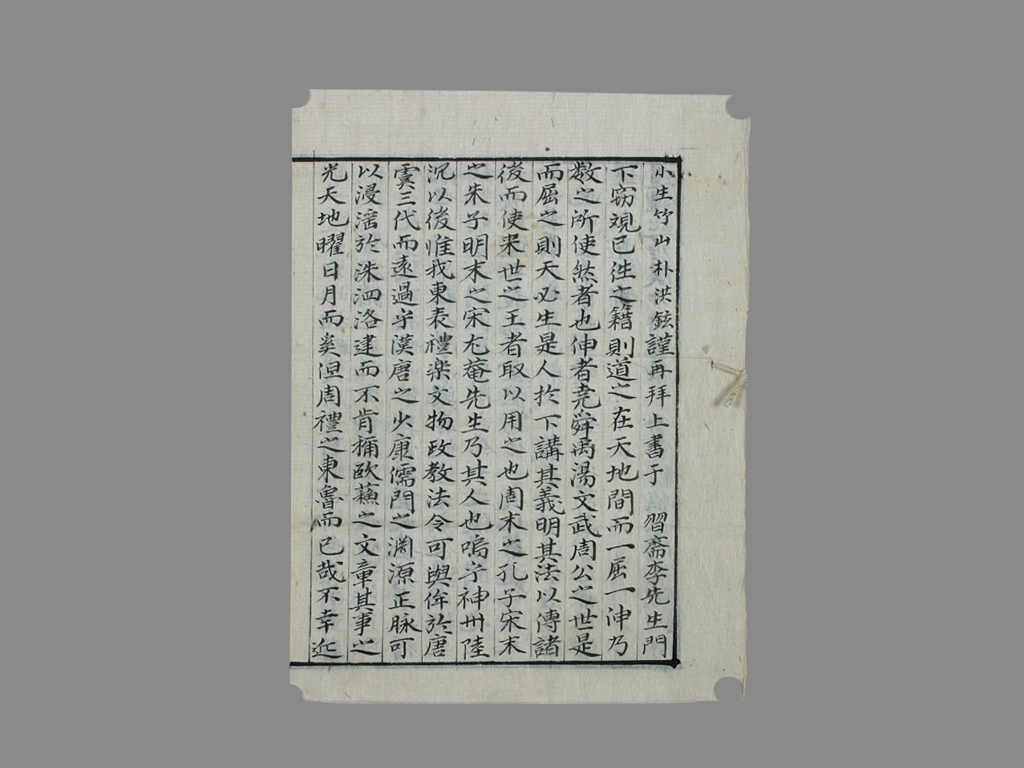 小生竹山朴洪鉉謹再拜上書于 習齋李先生門
下窃覌已徃之籍則道之在天地間而一屈一伸乃
数之所使然者也伸者堯舜禹湯文武周公之世是
而屈之則天必生是人於下講其義明其法以傳諸
後而使来世之王者取以用之也周末之孔子宋末
之朱子明末之宋尤菴先生乃其人也嗚乎神州陸
沉以後惟我東表禮楽文物政教法令可與侔於唐
虞三代而遠過乎漢唐之少康儒門之渊源正脉可
以浸滛於洙泗洛建而不肯稱欧蘇之文章其事之
光天地曜日月而奚但周禮之東魯而已哉不幸近